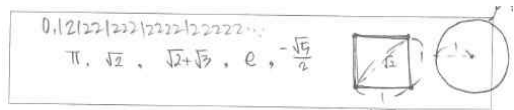 0.121221222122221222222...
π, √2, √2+√3, e, -√5/2
√2
1
1